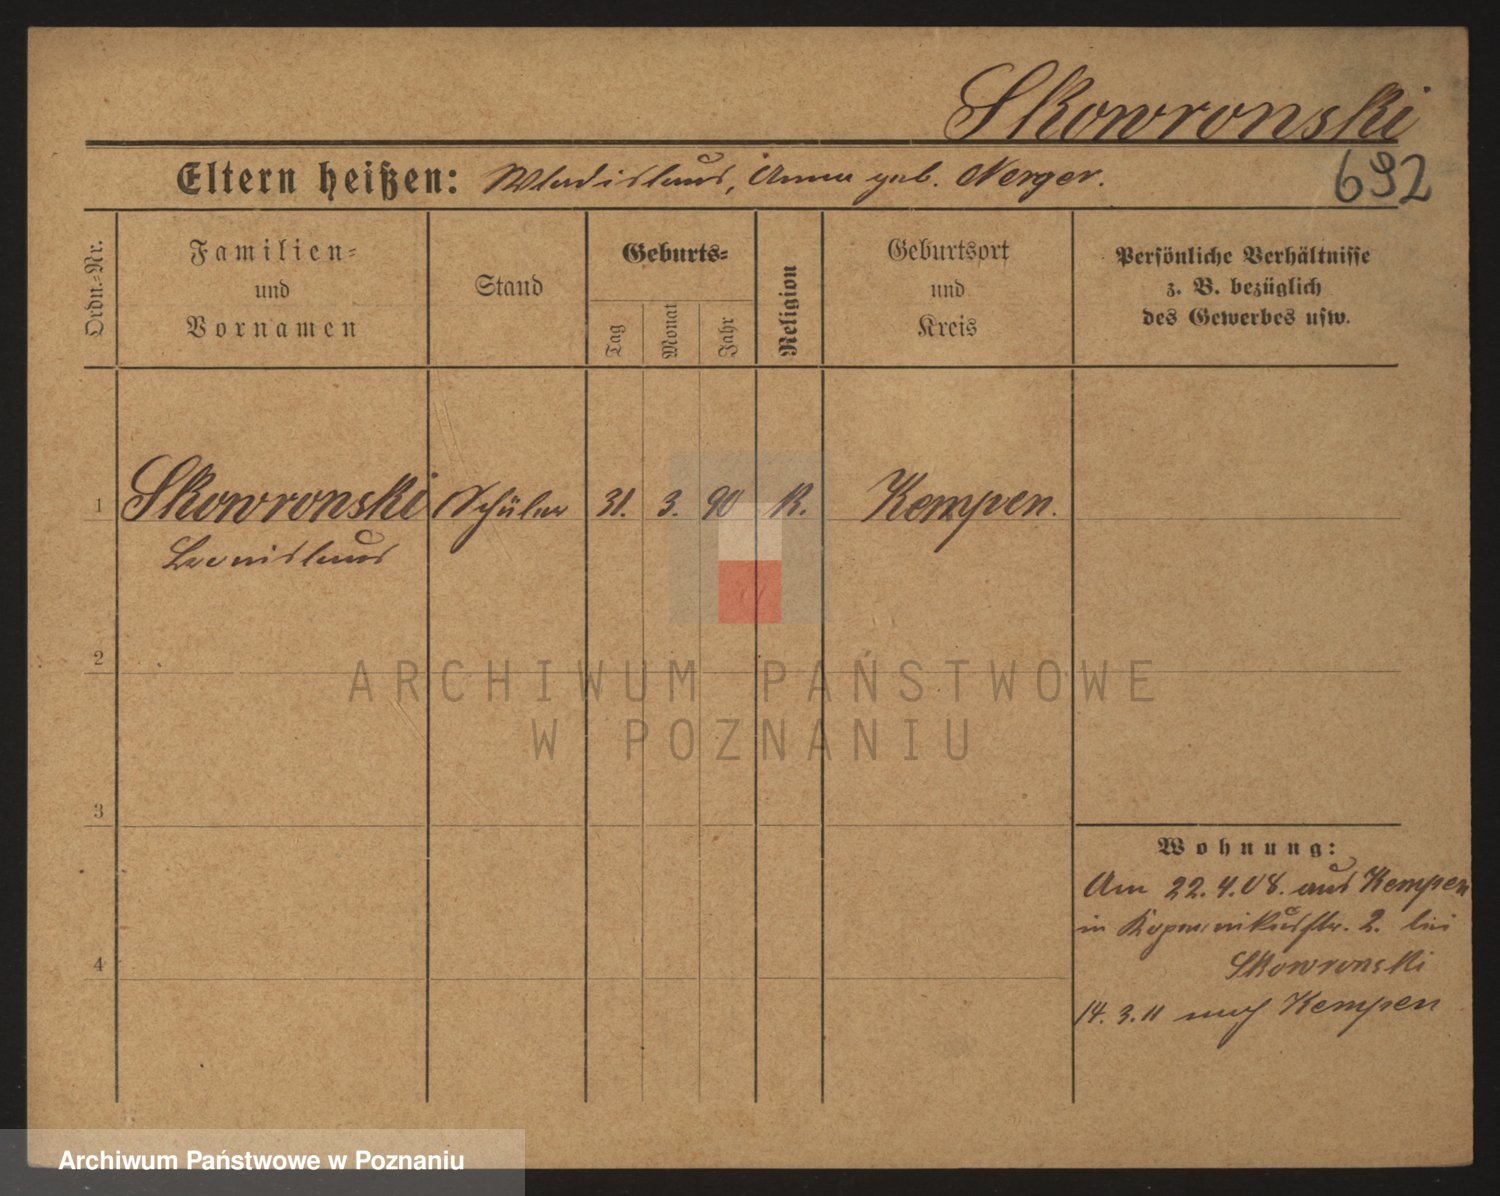 Skowronski
692
Eltern heißen: Wladislaus, Anna geb. Nerger.
Ordn.-Nr.
Familien- und Vornamen
Stand
Geburts-
Tag
Monat
Jahr
Religion
Geburtsort und Kreis
Persönliche Verhältnisse
z. B. bezüglich
des Gewerbes usw.
1 Skowronski Schüler 31. 3. 90 K. Kempen.
Bronislaus
2
ARCHIWUM PAŃSTWOWE
W POZNANIU
3
Wohnung:
Am 22.4.08. aus Kempen
in Kopernikusstr. 2. bei
Skowronski
4
14.3.11 nach Kempen
Archiwum Państwowe w Poznaniu